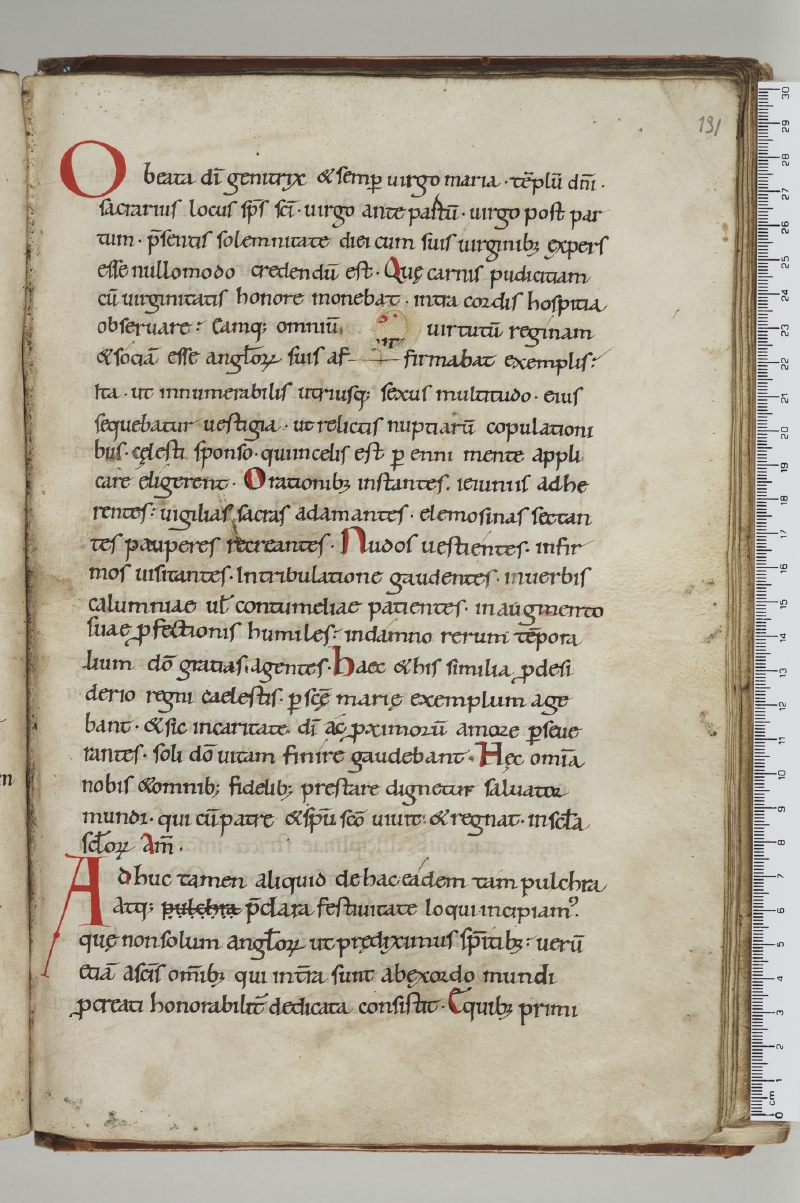 191
O beata dī genitrix & semꝑ uirgo maria · tēplū dn̄i ·
sacrarius locus sp̄s sc̄i · uirgo ante partū · uirgo post par
tum · p̄sentis solemnitate diei cum suis uirginibꝫ expers
esse nullomodo credendū est · Quę carnis pudicitiam
cū uirginitatis honore monebat · intra cordis hospitia
obseruare : Eamqꝫ omniū uirtutū reginam
& sociā esse angl̄oꝝ suis af firmabat exemplis :
Ita · ut innumerabilis utriusqꝫ sexus multitudo · eius
sequebatur uestigia · ut relictis nuptiarū copulationi
bus · cęlesti sponso · quiincelis est ꝑ enni mente appli
care eligerent · Orationibꝫ instantes . ieiuniis adhe
rentes : uigilias sacras adamantes · elemosinas sectan
tes pauperes recreantes · Nudos uestientes · infir
mos uisitantes · Intribulatione gaudentes · inuerbis
calumniae ul̄ contumeliae patientes · inaugmento
suae ꝓfectionis humiles : indamno rerum tēpora
lium dō gratias agentes · haec & his similia ꝓdesi
derio regni caelestis · ꝑ scę̄ marię exemplum age
bant · & sic incaritate dī ac ꝓximorū amore ꝑseue
rantes · soli dō uitam finire gaudebant · Hęc om̄ia
nobis & omnibꝫ fidelibꝫ prestare dignetur saluator
mundi · qui cū patre & sp̄u sc̄o uiuit & regnat · in scl̄a
scl̄oꝝ Am̄ ·
Adhuc tamen aliquid de hac eadem tam pulchra
atqꝫ pulchra p̄clara festiuitate loqui incipiam ·
quę non solum angl̄oꝝ ut pręđiximus sp̄itibꝫ : uerū
etiā ascīs om̄ibꝫ qui intr̄a sunt abexordo mundi
ꝓcreati honorabilit̄ dedicata consistit · Equibꝫ primi